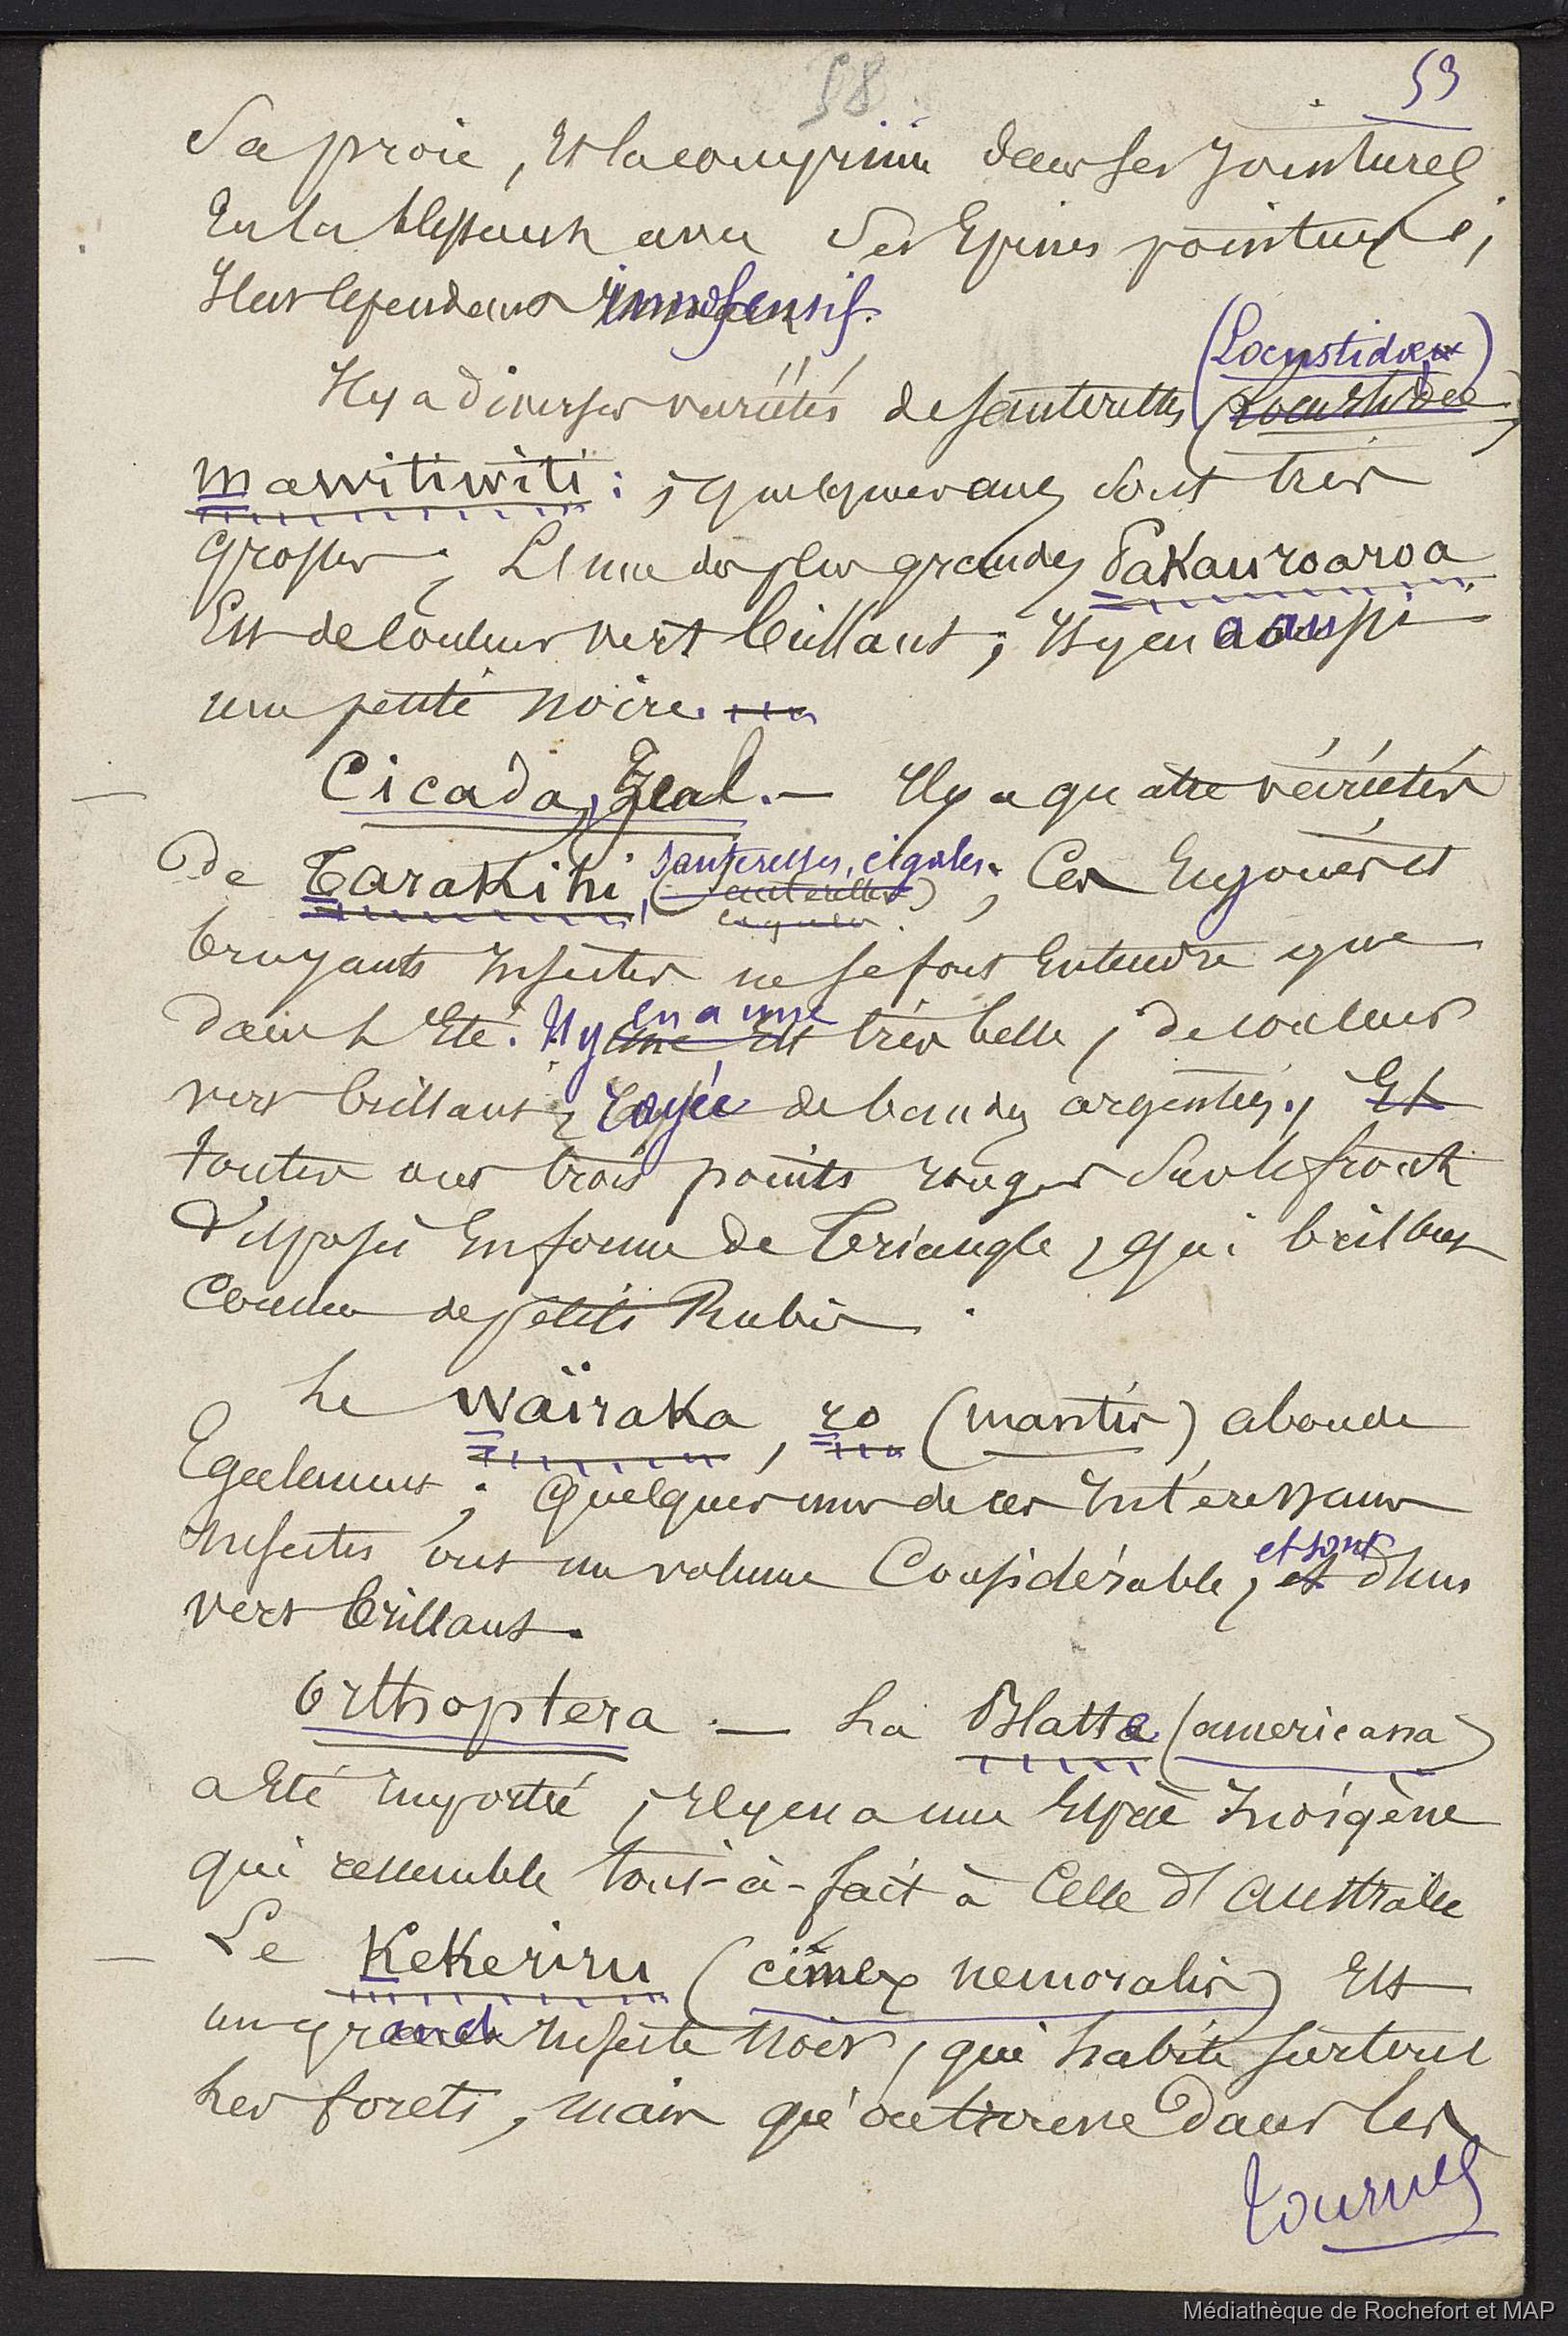 58
53
Sa proie, Et la comprime dans ses Jointures
En la blessant avec Ses Epines pointues ;
Il est cependant inofensif.
(Locustidæ)
Il y a diverses variétés de sauterelles (Locustidee)
mawitiwiti : ; quelques unes sont très
grosses ; L'une des plus grandes Pakauroaroa
Est de couleur vert brillant ; Il y en a aussi
une petite noire.
Cicada, Zeal. — Il y a quatre variétés
de Tarakihi, (sauterelles, cigales. ; Ces Enjoués et
sauterelles)
cigales
bruyants Insectes ne se font Entendre que
dans l'Eté. Il y en a une
une Est très belle, de couleur
vert brillant, rayée de bandes argentées, Et
toutes ont trois points rouges Sur le front
disposés En forme de triangle, qui brillent
Comme de petits Rubis.
Le Waïraka, ro (mantis) abonde
Egalement ; Quelques uns de ces Intéressants
et sont
Insectes ont un volume Considérable, et d'un
vert brillant.
Orthoptera. — La Blatta (americana)
a Eté Importée ; Il y en a une Espèce Indigène
qui ressemble tout-à-fait à Celle d'Australie
Le Kekeriru (cimex nemoralis) Est
un grand Insecte noir, qui habite surtout
Les forets, mais qu'on trouve dans les
tournez
Médiathèque de Rochefort et MAP